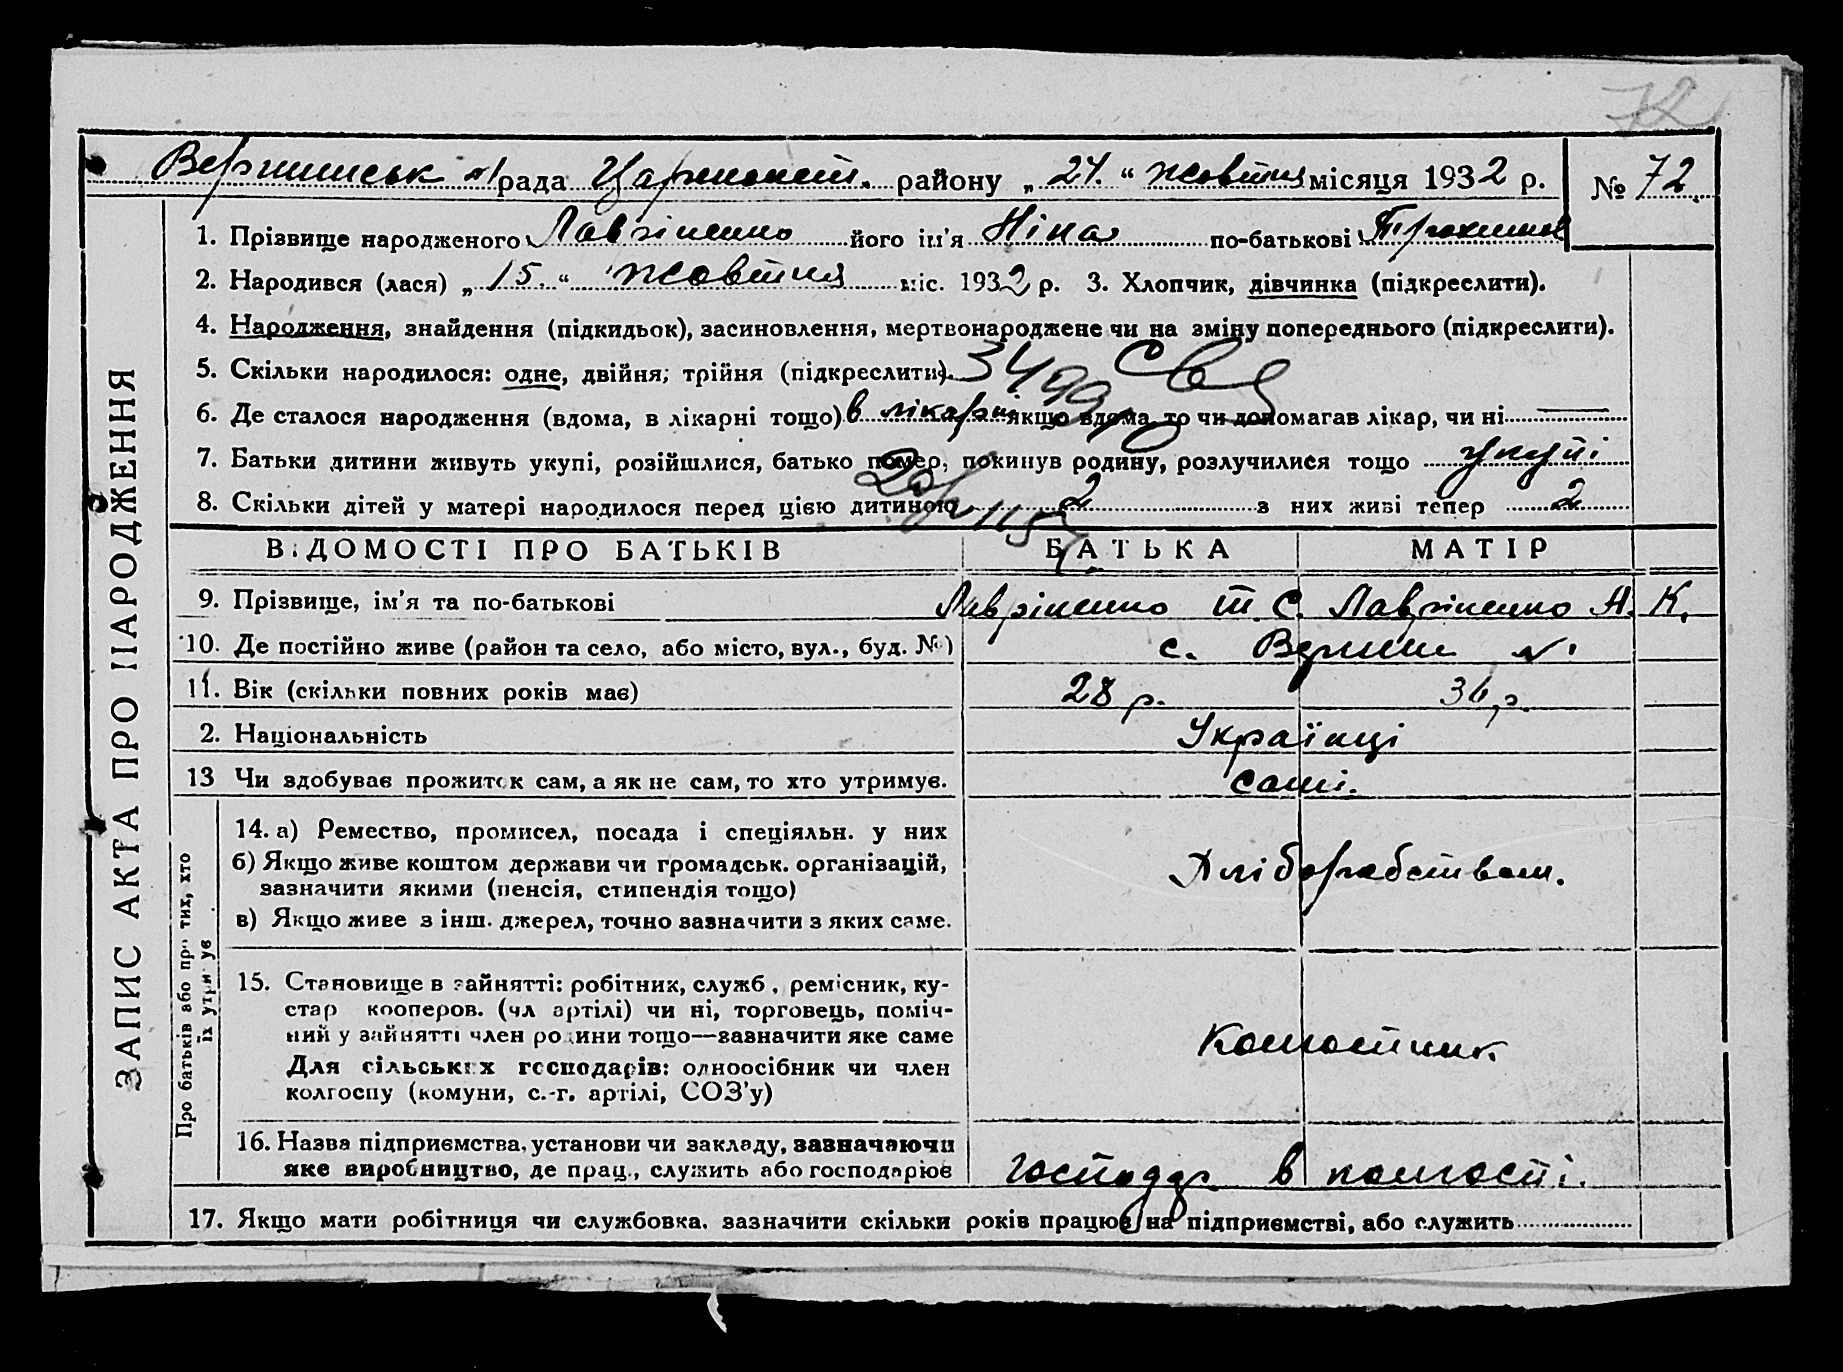 72
рада району „ 24. “ жовтня місяця 1932 р. № 72
1. Прізвище народженого Лавріненко його ім'я Ніна по-батькові
2. Народився (лася) „ 15. “ жовтня міс. 1932 р. 3. Хлопчик, дівчинка (підкреслити).
4. Народження, знайдення (підкидьок), засиновлення, мертвонароджене чи на зміну попереднього (підкреслити).
5. Скільки народилося: одне, двійня; трійня (підкреслити).
6. Де сталося народження (вдома, в лікарні тощо) в лікарні якщо вдома то чи допомагав лікар, чи ні —
7. Батьки дитини живуть укупі, розійшлися, батько помер, покинув родину, розлучилися тощо укупі
8. Скільки дітей у матері народилося перед цією дитиною 2 з них живі тепер 2
ВІДОМОСТІ ПРО БАТЬКІВ БАТЬКА МАТІР
9. Прізвище, ім'я та по-батькові Лавріненко Т. С. Лавріненко А. К.
10. Де постійно живе (район та село, або місто, вул., буд. №) с.
11. Вік (скільки повних років має) 28 р.
2. Національність Українці
13 Чи здобуває прожиток сам, а як не сам, то хто утримує. самі.
14. а) Ремество, промисел, посада і спеціяльн. у них
б) Якщо живе коштом держави чи громадськ. організацій,
зазначити якими (пенсія, стипендія тощо)
Хліборобством.
в) Якщо живе з інш. джерел, точно зазначити з яких саме.
15. Становище в зайнятті: робітник, служб., ремісник, ку-
стар кооперов. (чл артілі) чи ні, торговець, поміч-
ний у зайнятті член родини тощо—зазначити яке саме
Колгоспник
Для сільських господарів: одноосібник чи член
колгоспу (комуни, с.-г. артілі, СОЗ'у)
16. Назва підприємства, установи чи закладу, зазначаючи
яке виробництво, де прац., служить або господарює господар. в колгоспі.
17. Якщо мати робітниця чи службовка, зазначити скільки років працює на підприємстві, або служить
ЗАПИС АКТА ПРО НАРОДЖЕННЯ
Про батьків або про тих, хто
їх утримує